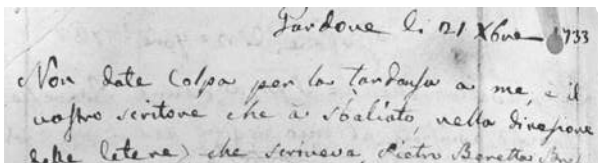 Gardone li 21 Xbre 1733
Non date Colpa per la tardansa a me, è il
vostro scritore che à sbaliato, nella diresione
delle letere) che scriveva, Pietro Beretta